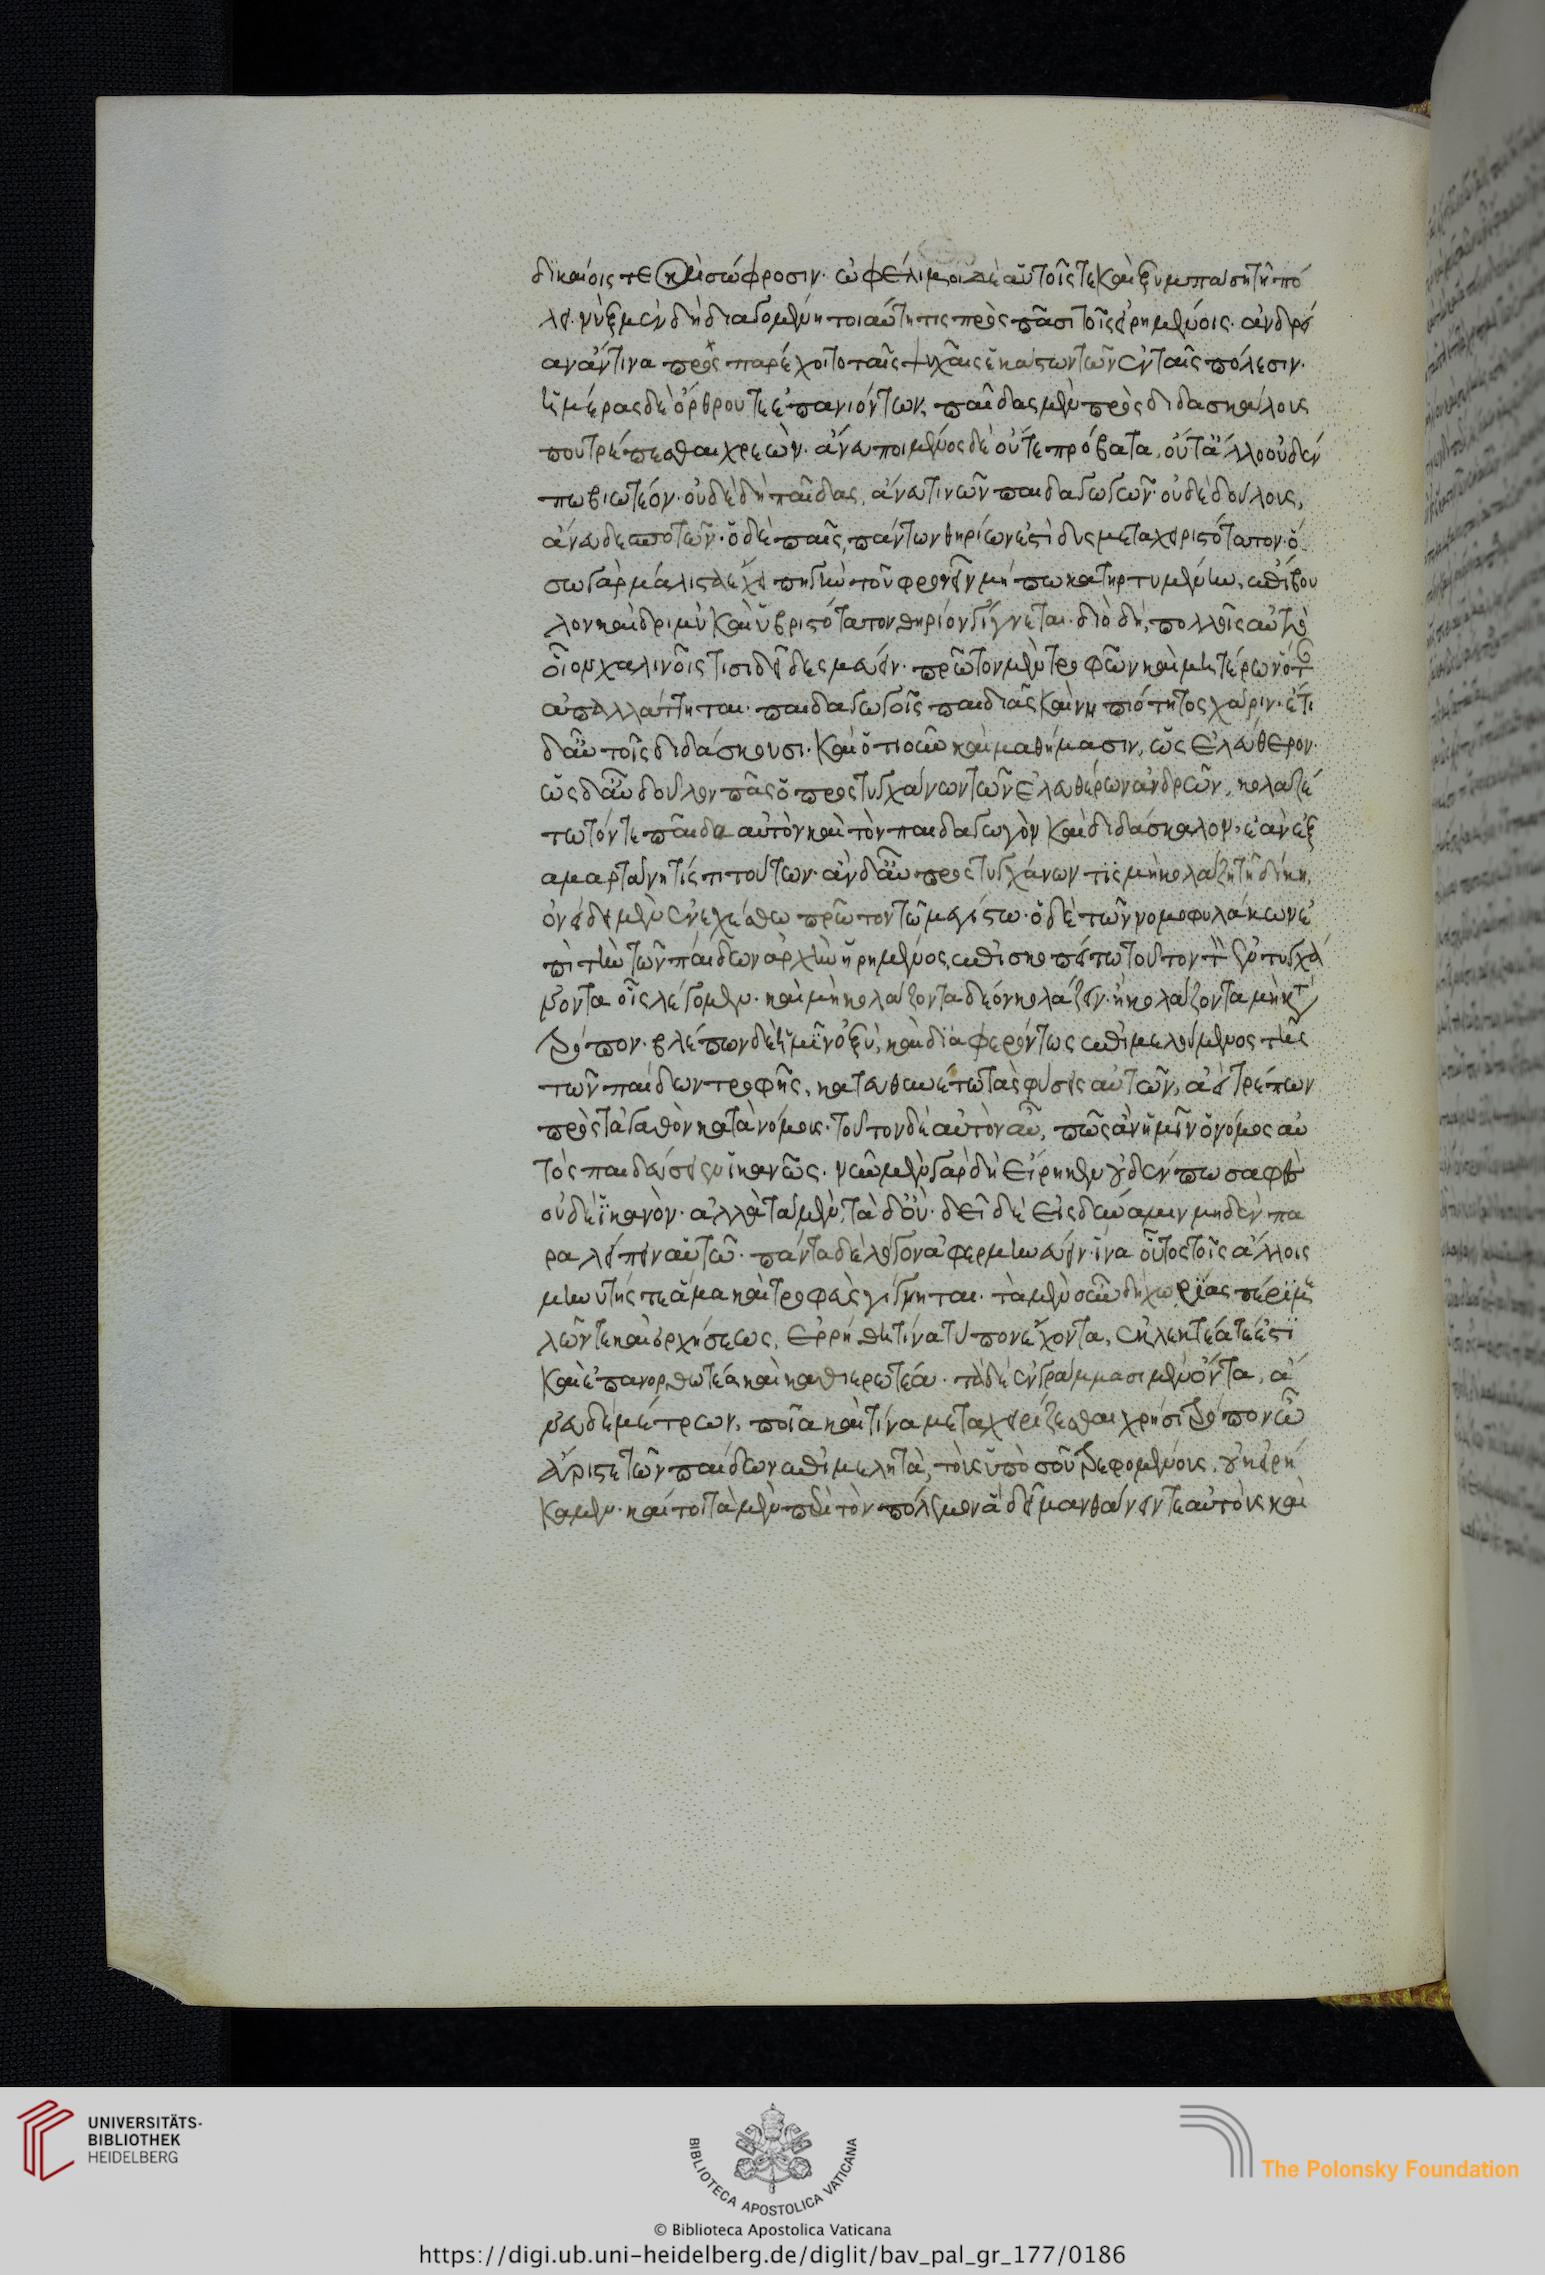 δικαίοις τε καὶ σώφροσιν· ὠφέλιμοι δὲ αὑτοῖς τε καὶ ξυμπάση τῆ πό
λει· νὺξ μὲν δὴ διαγομένη τοιαύτη τις πρὸς πᾶσι τοῖς εἰρημένοις· ἀνδρεί
αν ἄν τινα προς παρέχοιτο ταῖς ψυχαῖς ἑκάστων τῶν ἐν ταῖς πόλεσιν·
ἡμέρας δὲ ὄρθρου τε ἐπανιόντων, παῖδας μὲν πρὸς διδασκάλους
που τρέπεσθαι χρεὼν· ἄνευ ποιμένος δὲ οὔτε πρόβατα, οὔτ' ἄλλο οὐδέν
πω βιωτέον· οὐδὲ δὴ παῖδας, ἄνευ τινῶν παιδαγωγῶν· οὐδὲ δούλους,
ἄνευ δεσποτῶν· ὁ δὲ παῖς, πάντων θηρίων ἐστὶ δυσμεταχειριστότατον· ὅ
σω γὰρ μάλιστα ἔχει πηγὴν τοῦ φρονεῖν μήπω κατηρτυμένην, ἐπίβου
λον καὶ δριμὺ καὶ ὑβριστότατον θηρίον γίγνεται· διὸ δὴ, πολλοῖς αὐτὸ
οἷον χαλινοῖς τισι δεῖ δεσμεύειν· πρῶτον μὲν τροφῶν καὶ μητέρων ὅταν
ἀπαλλάττηται· παιδαγωγοῖς παιδιᾶς καὶ νηπιότητος χάριν· ἔτι
δ' αὖ τοῖς διδάσκουσι· καὶ ὁτιοῦν καὶ μαθήμασιν, ὡς ἐλεύθερον·
ὡς δ' αὖ δοῦλον πᾶς ὁ προςτυγχάνων τῶν ἐλευθέρων ἀνδρῶν, κολαζέ
τω τόν τε παῖδα αὐτὸν καὶ τὸν παιδαγωγὸν καὶ διδάσκαλον, ἐάν ἐξ
αμαρτάνη τίς τι τούτων· ἂν δ' αὖ προςτυγχάνων τὶς μὴ κολάζη τῆ δίκη,
ὀνείδει μὲν ἐνεχέσθω πρῶτον τῶ μεγίστω· ὁ δὲ τῶν νομοφυλάκων ἐ
πὶ τὴν τῶν παίδων ἀρχὴν ἡρημένος, ἐπισκοπείτω τοῦτον τὸν ἐντυγχά
νοντα οἷς λέγομεν· καὶ μὴ κολάζοντα δέον κολάζειν· ἢ κολάζοντα μὴ κατὰ
τρόπον· βλέπων δὲ ἡμῖν ὀξὺ, καὶ διαφερόντως ἐπιμελούμενος τῆς
τῶν παίδων τροφῆς, κατευθυνέτω τὰς φύσεις αὐτῶν, ἀεὶ τρέπων
πρὸς τἀγαθὸν κατὰ νόμους· τοῦτον δὲ αὐτὸν αὖ, πῶς ἂν ἡμῖν ὁ νόμος αὐ
τὸς παιδεύσειεν ἱκανῶς· νῦν μὲν γὰρ δὴ εἴρηκεν οὐδέν πω σαφὲς
οὐδὲ ἱκανὸν· ἀλλὰ τὰ μὲν, τὰ δ' οὔ· δεῖ δὲ εἰς δύναμιν μηδὲν πα
ραλείπειν αὑτῶ· πάντα δὲ λόγον ἀφερμηνεύειν· ἵνα οὗτος τοῖς ἄλλοις
μηνυτής τε ἅμα καὶ τροφεὺς γίγνηται· τὰ μὲν οὖν δὴ χορείας πέρι με
λῶν τε καὶ ὀρχήσεως, ἐρρήθη τίνα τύπον ἔχοντα, ἐκλεκτέα τέ ἐστι
καὶ ἐπανορθωτέα καὶ καθιερωτέα· τὰ δὲ ἐν γράμμασι μὲν ὄντα, ἄ
νευ δὲ μέτρων, ποῖα καὶ τίνα μεταχειρίζεσθαι χρή σοι τρόπον ὦ
ἄριστε τῶν παίδων ἐπιμελητὰ, τοὺς ὑπὸ σοῦ τρεφομένους, οὐκ εἰρή
καμεν· καί τοι τὰ μὲν περὶ τὸν πόλεμον ἃ δεῖ μανθάνειν τε αὐτοὺς καὶ
UNIVERSITÄTS-
BIBLIOTHEK
HEIDELBERG
BIBLIOTECA APOSTOLICA VATICANA
The Polonsky Foundation
© Biblioteca Apostolica Vaticana
https://digi.ub.uni-heidelberg.de/diglit/bav_pal_gr_177/0186